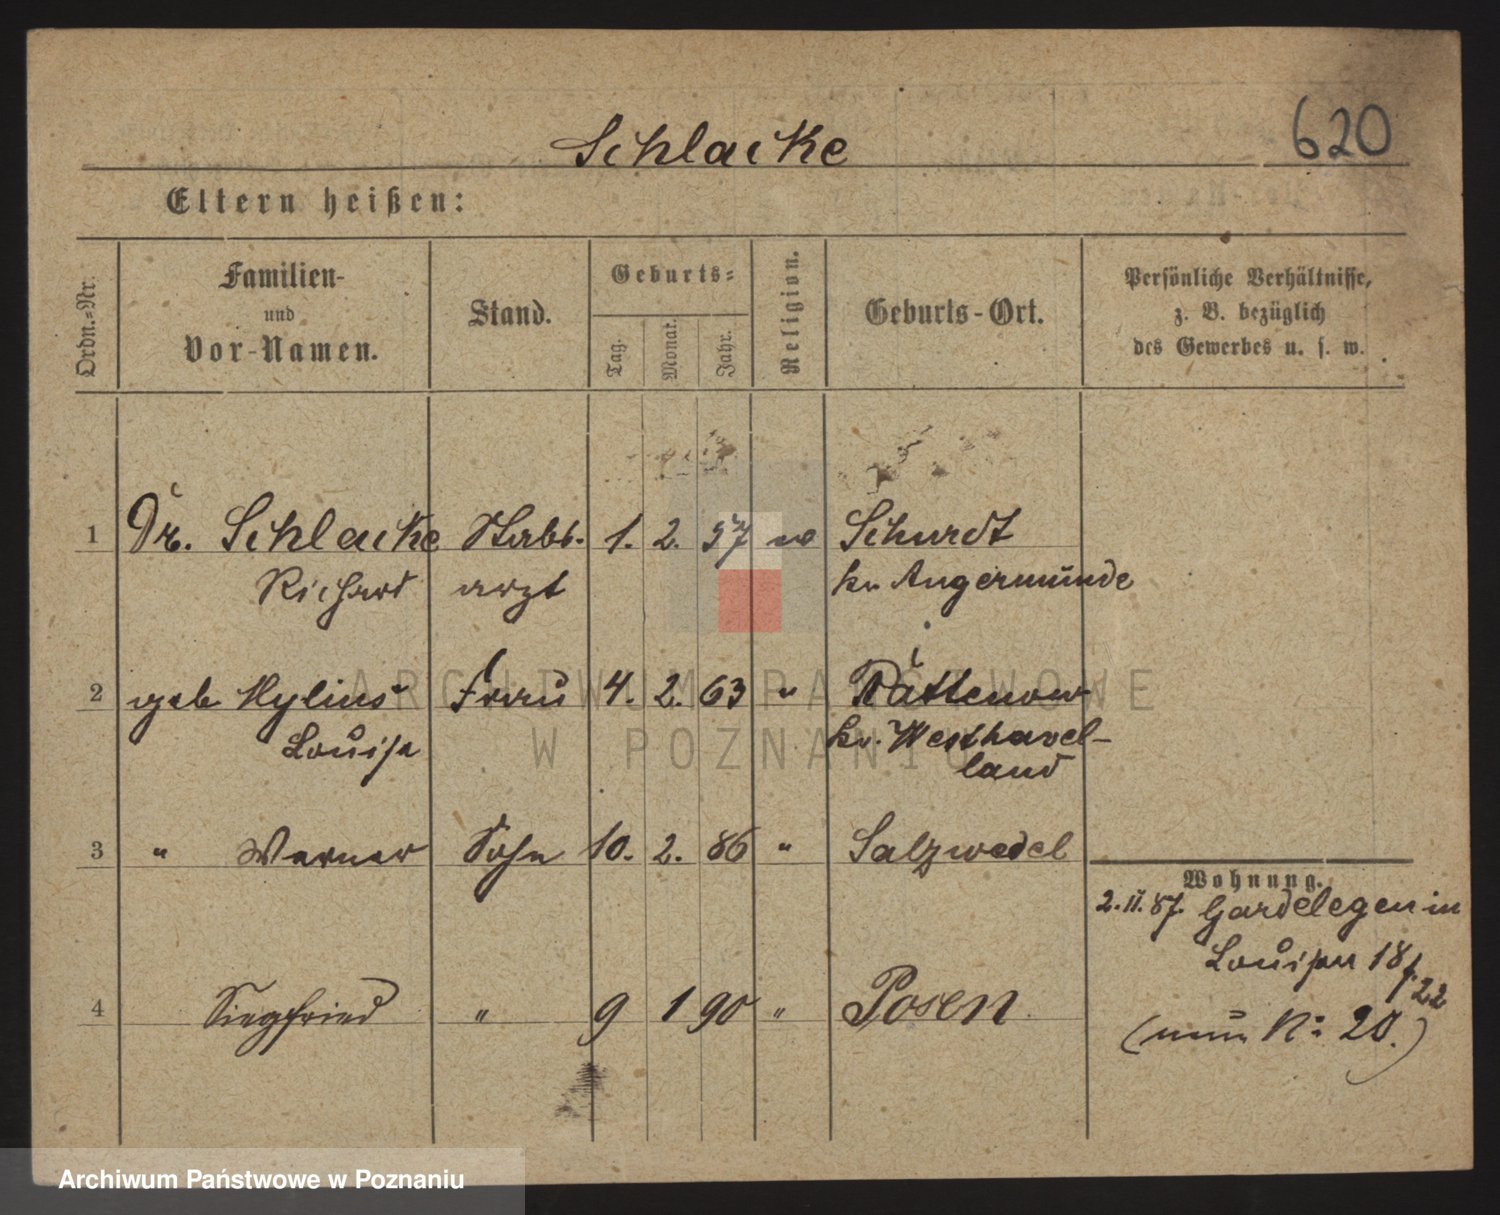 Schlacke
620
Eltern heißen:
Ordn.=Nr.
Familien-
und
Vor-Namen.
Stand.
Geburts=
Tag.
Monat.
Jahr.
Religion.
Geburts-Ort.
Persönliche Verhältnisse,
z. B. bezüglich
des Gewerbes u. s. w.
1 Dr. Schlacke Stabs- 1. 2. 57 ev Schwedt
Richard arzt Kr. Angermünde
2 geb Mylius Frau 4. 2. 63 " Rattenow
Louise Kr. Westhavel-
land
3 " Werner Sohn 10. 2. 86 " Salzwedel
Wohnung.
2.11.87. Gardelegen in
Louisen 18
22
4 Siegfried " 9 1 90 " Posen
(nun No 20.)
ARCHIWUM PAŃSTWOWE
W POZNANIU
Archiwum Państwowe w Poznaniu